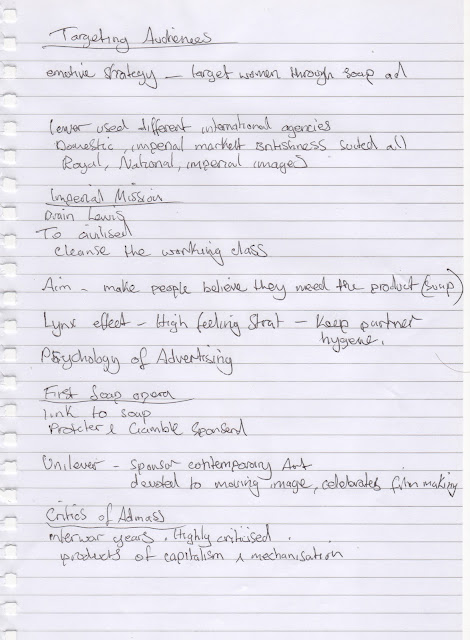 Targeting Audiences
emotive strategy – target women through soap ad
lever used different international agencies
Domestic, imperial market Britishness suited all
Royal, National, imperial images
Imperial Mission
Lewis
To civilised
cleanse the working class
Aim - make people believe they need the product (soap)
Lynx effect – High feeling Strat – Keep partner
hygene.
Psychology of Advertising
First Soap opera
link to soap
Procter & Gamble Sponserd
Unilever - sponsor contemporary Art
devoted to moving image, celebrates film making
Critics of Admass
interwar years. Highly criticised.
products of capitalism & mechanisation